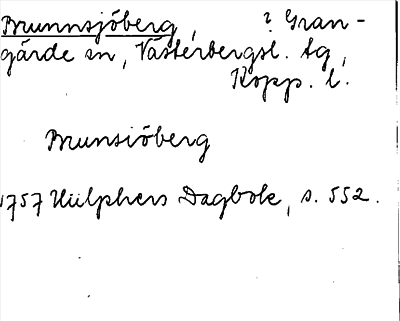 Brunnsjöberg, ? Gran-
gärde sn, Västerbergsl. tg,
Kopp. l.
Brunsiöberg
1757 Hülphers Dagbok, s. 552.